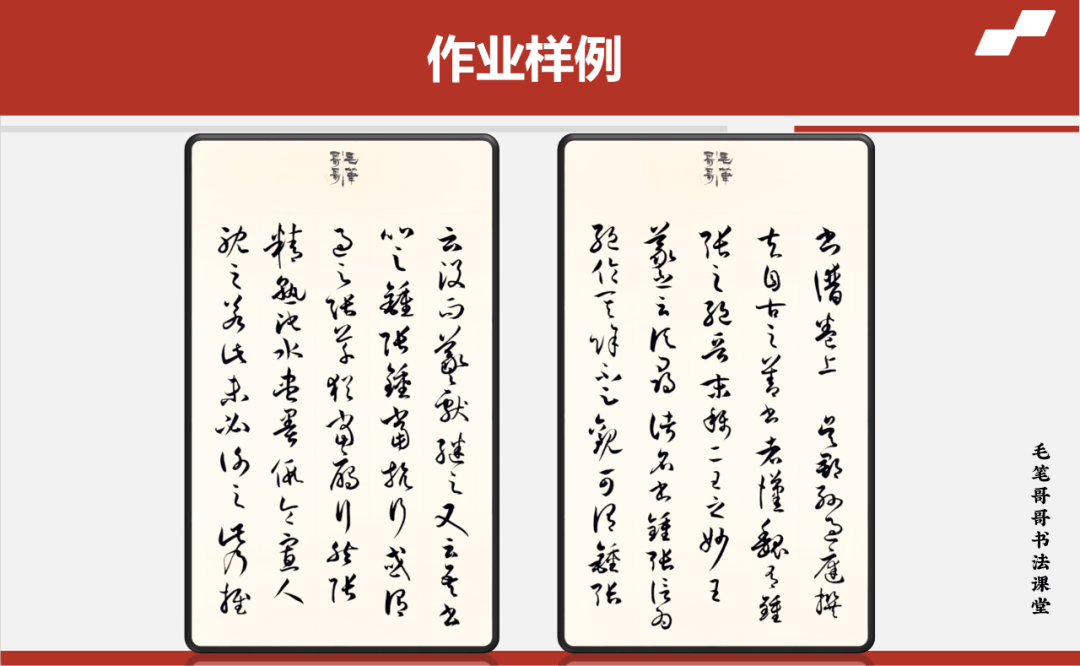 作业样例
毛筆
哥哥
書譜卷上 吳郡孫過庭撰
夫自古之善書者漢魏有鍾
張之絕晉末稱二王之妙王
羲之云頃尋諸名書鍾張信為
絕倫其餘不足觀可謂鍾張
毛筆
哥哥
云沒而羲獻繼之又云吾書
比之鍾張鍾當抗行或謂
過之張草猶當鴈行然張
精熟池水盡墨假令寡人
耽之若此未必謝之此乃推
毛笔哥哥书法课堂